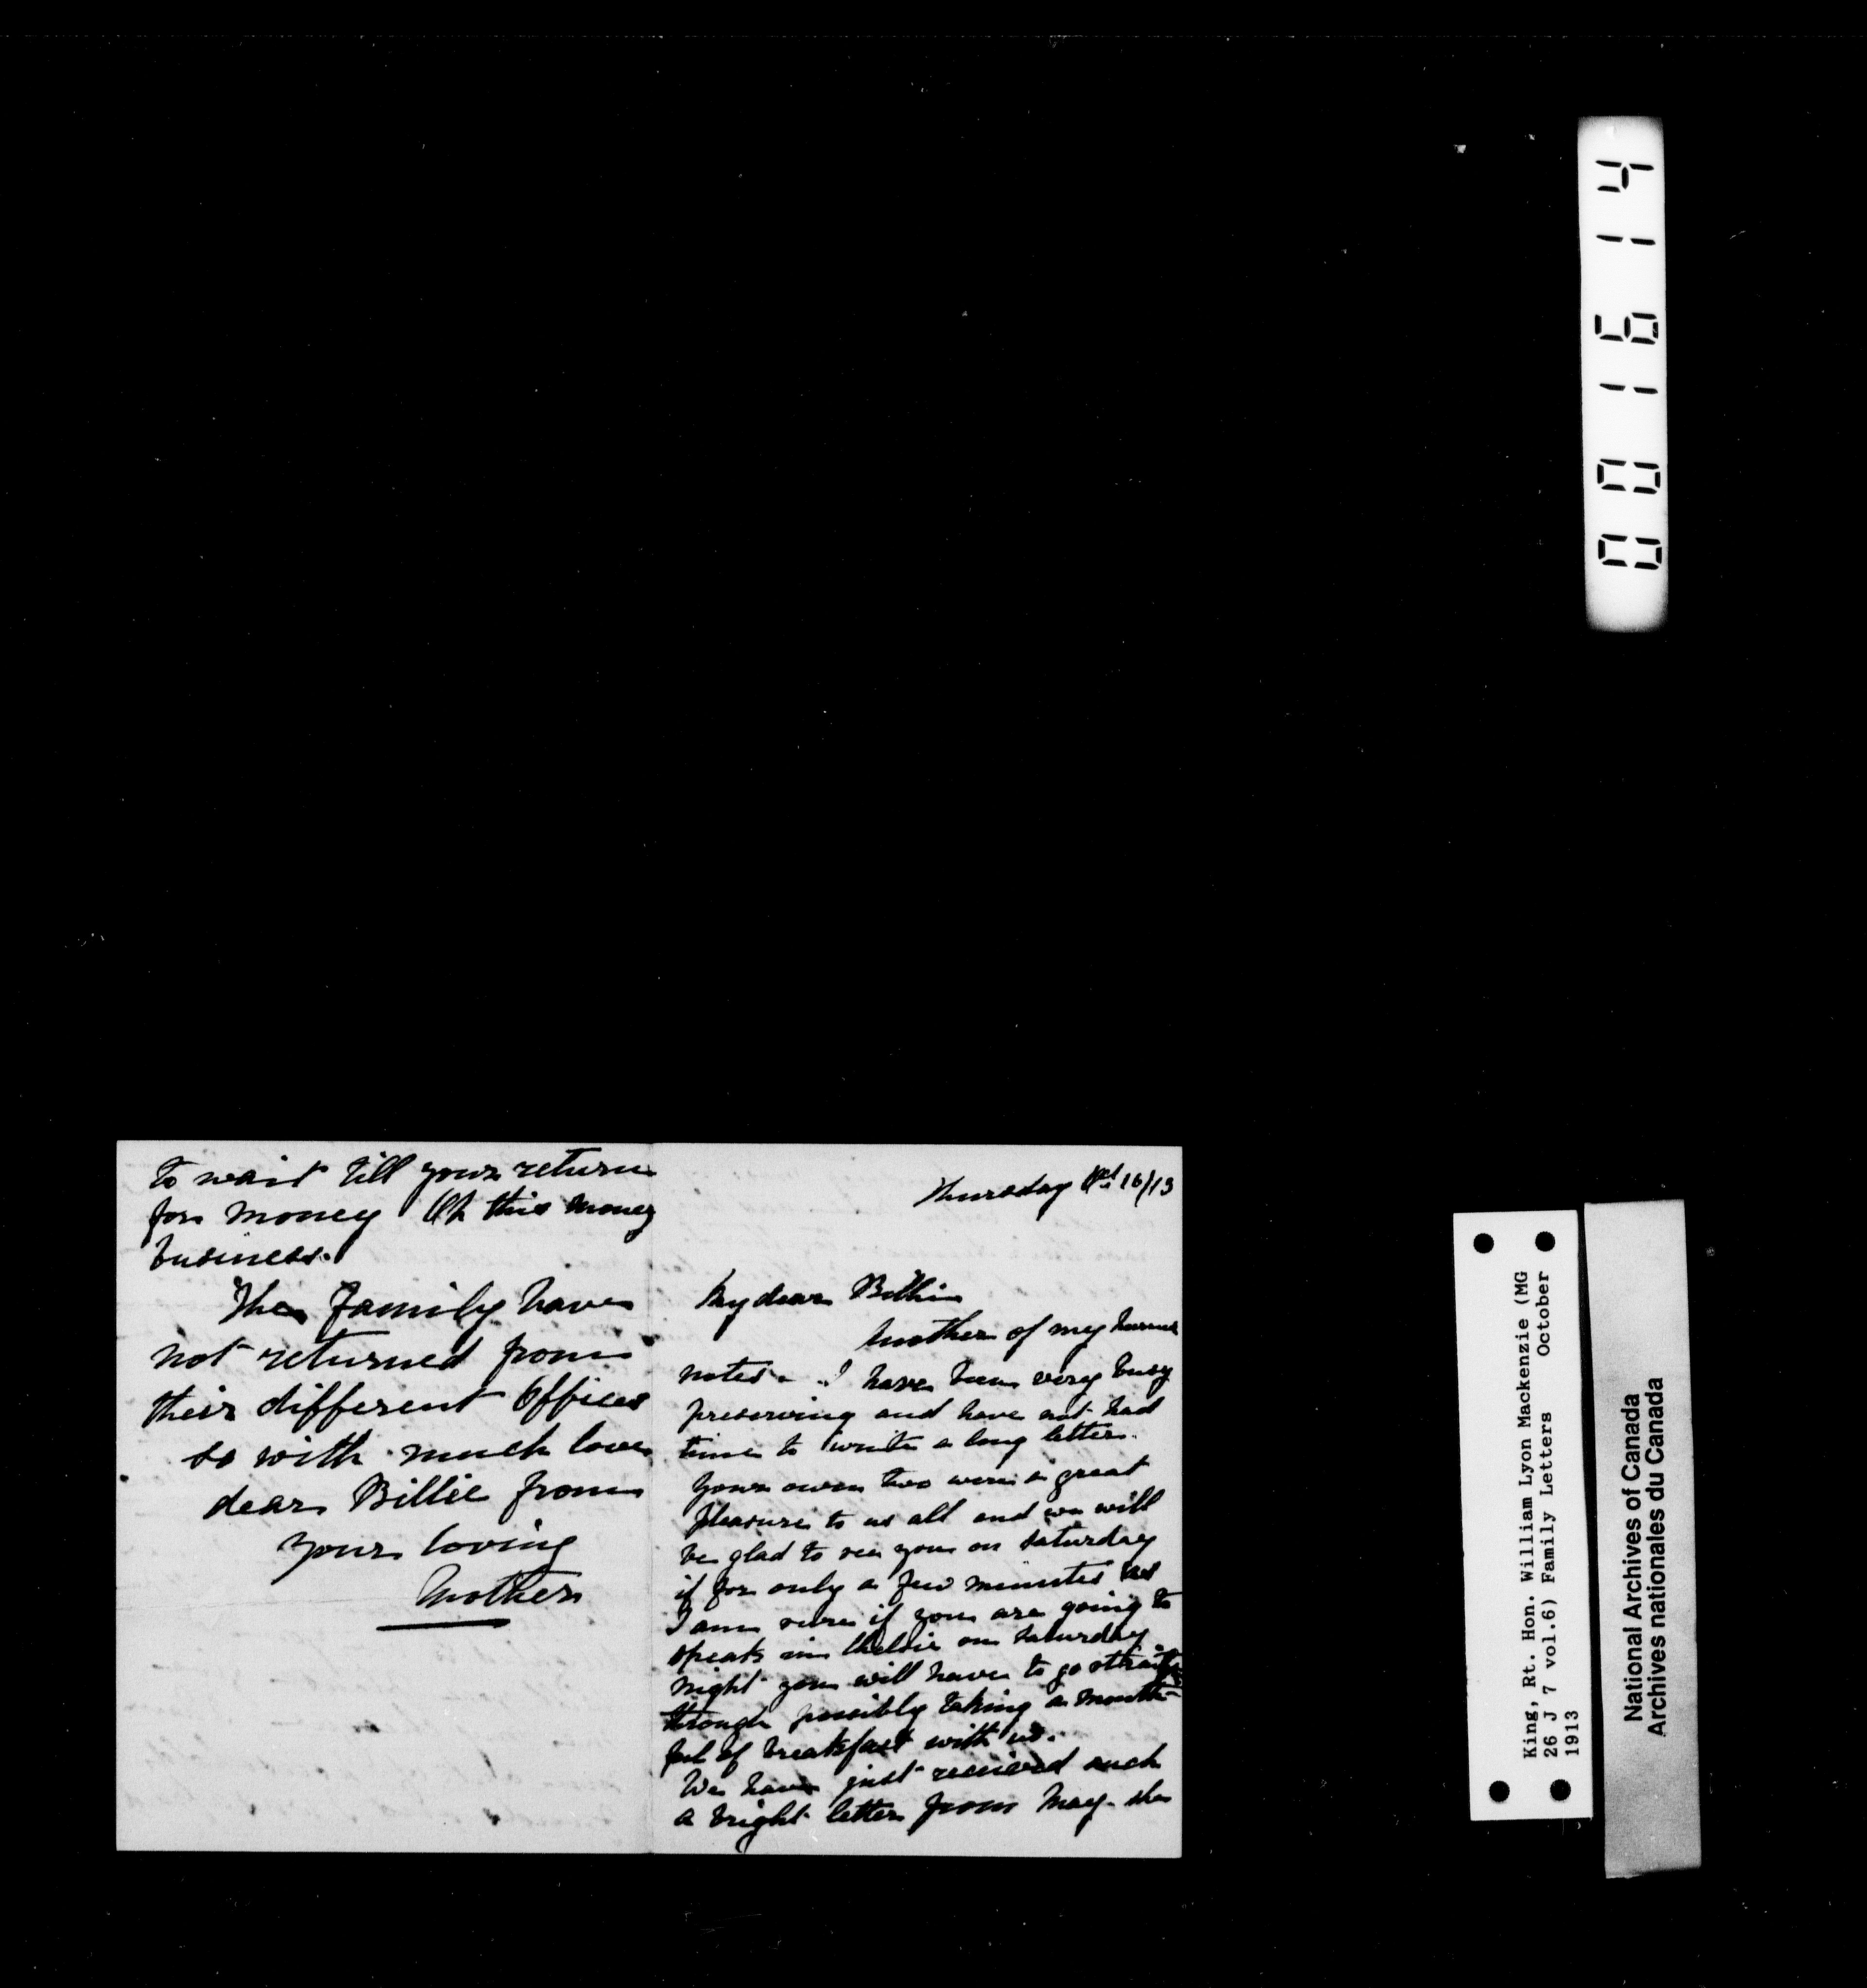 to wait till your return
for money Oh this money
business.
The Family have
not returned from
their different Offices
so with much love
dear Billie from
your loving
Mother
Thursday Oct 16/13
My dear Billie
Another of my hurried
notes - I have been very busy
preserving and have not had
time to write a long letter.
Your own two were a great
pleasure to us all and we will
be glad to see you on Saturday
if for only a few minutes as
I am sure if you are going to
speak in on Saturday
night you will have to go straight
through possibly taking a mouth-
ful of breakfast with us.
We have just received such
a bright letter from May. she
001614
King, Rt. Hon. William Lyon Mackenzie (MG
26 J 7 vol.6) Family Letters October
1913
National Archives of Canada
Archives nationales du Canada